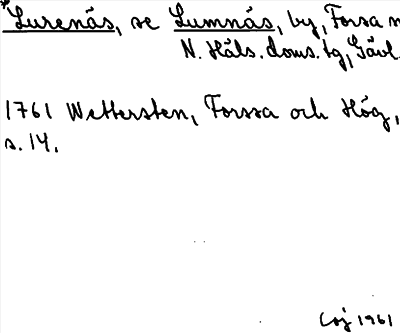 *Lurenäs, se Lumnäs, by, Forsa
N. Häls. doms.tg, Gävl.
1761 Wettersten, Forssa och Hög,
s. 14.
1961